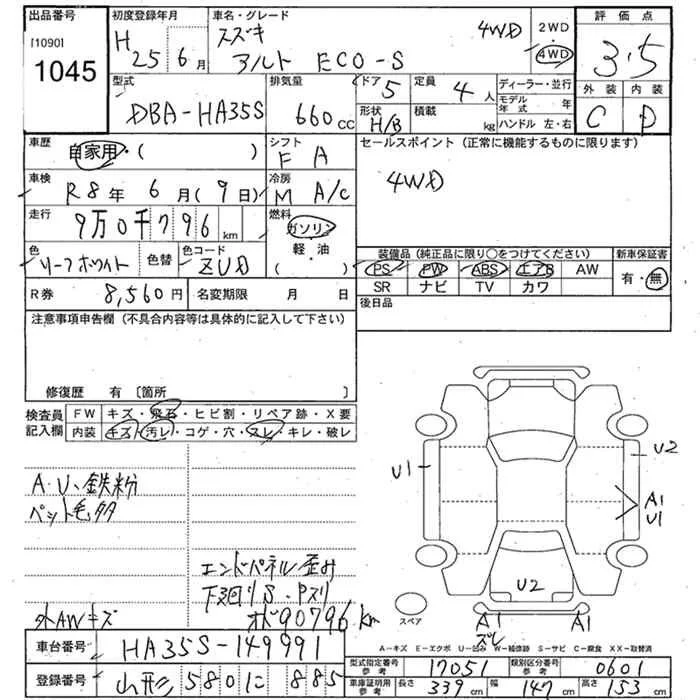 出品番号 初度登録年月 車名・グレード 評価点
[1090] 1045
H 25 6月
スズキ 4WD 2WD 4WD
アルト ECO-S
3.5
型式 排気量 ドア 5 定員 4人 ディーラー・並行 外装 内装
DBA-HA35S 660cc 形状 H/B 積載 kg モデル年式 年 C D
ハンドル 左・右
車歴 自家用・( ) シフト F A セールスポイント(正常に機能するものに限ります)
車検 R8年 6月(9日) 冷房 M A/C 4WD
走行 9万0千796km 燃料 ガソリン
軽・油 ( )
色 リーフホワイト 色替 色コード ZUD
装備品(純正品に限り○をつけてください) 新車保証書
PS PW ABS エアB AW 有・無
SR ナビ TV カワ
R券 8,560円 名変期限 月 日 後日品
注意事項申告欄(不具合内容等は具体的に記入して下さい)
修復歴 有〔箇所 〕
検査員記入欄 FW キズ・飛石・ヒビ割・リペア跡・X要
内装 キズ・汚レ・コゲ・穴・スレ・キレ・破レ
U1 U2
A・U、鉄粉
A1
U1
ペット毛多
エンドパネル歪み
U2
下廻りS・Pスリ
外AWキズ オド90796km
スペア A1 A1
ズレ
車台番号 HA35S-149991
A-キズ E-エクボ U-凹み W-補修跡 S-サビ C-腐食 XX-取替済
型式指定番号 参考 17051 類別区分番号 参考 0601
登録番号 山形 580 に 885
車庫証明用 参考 長さ 339cm 幅 147cm 高さ 153cm